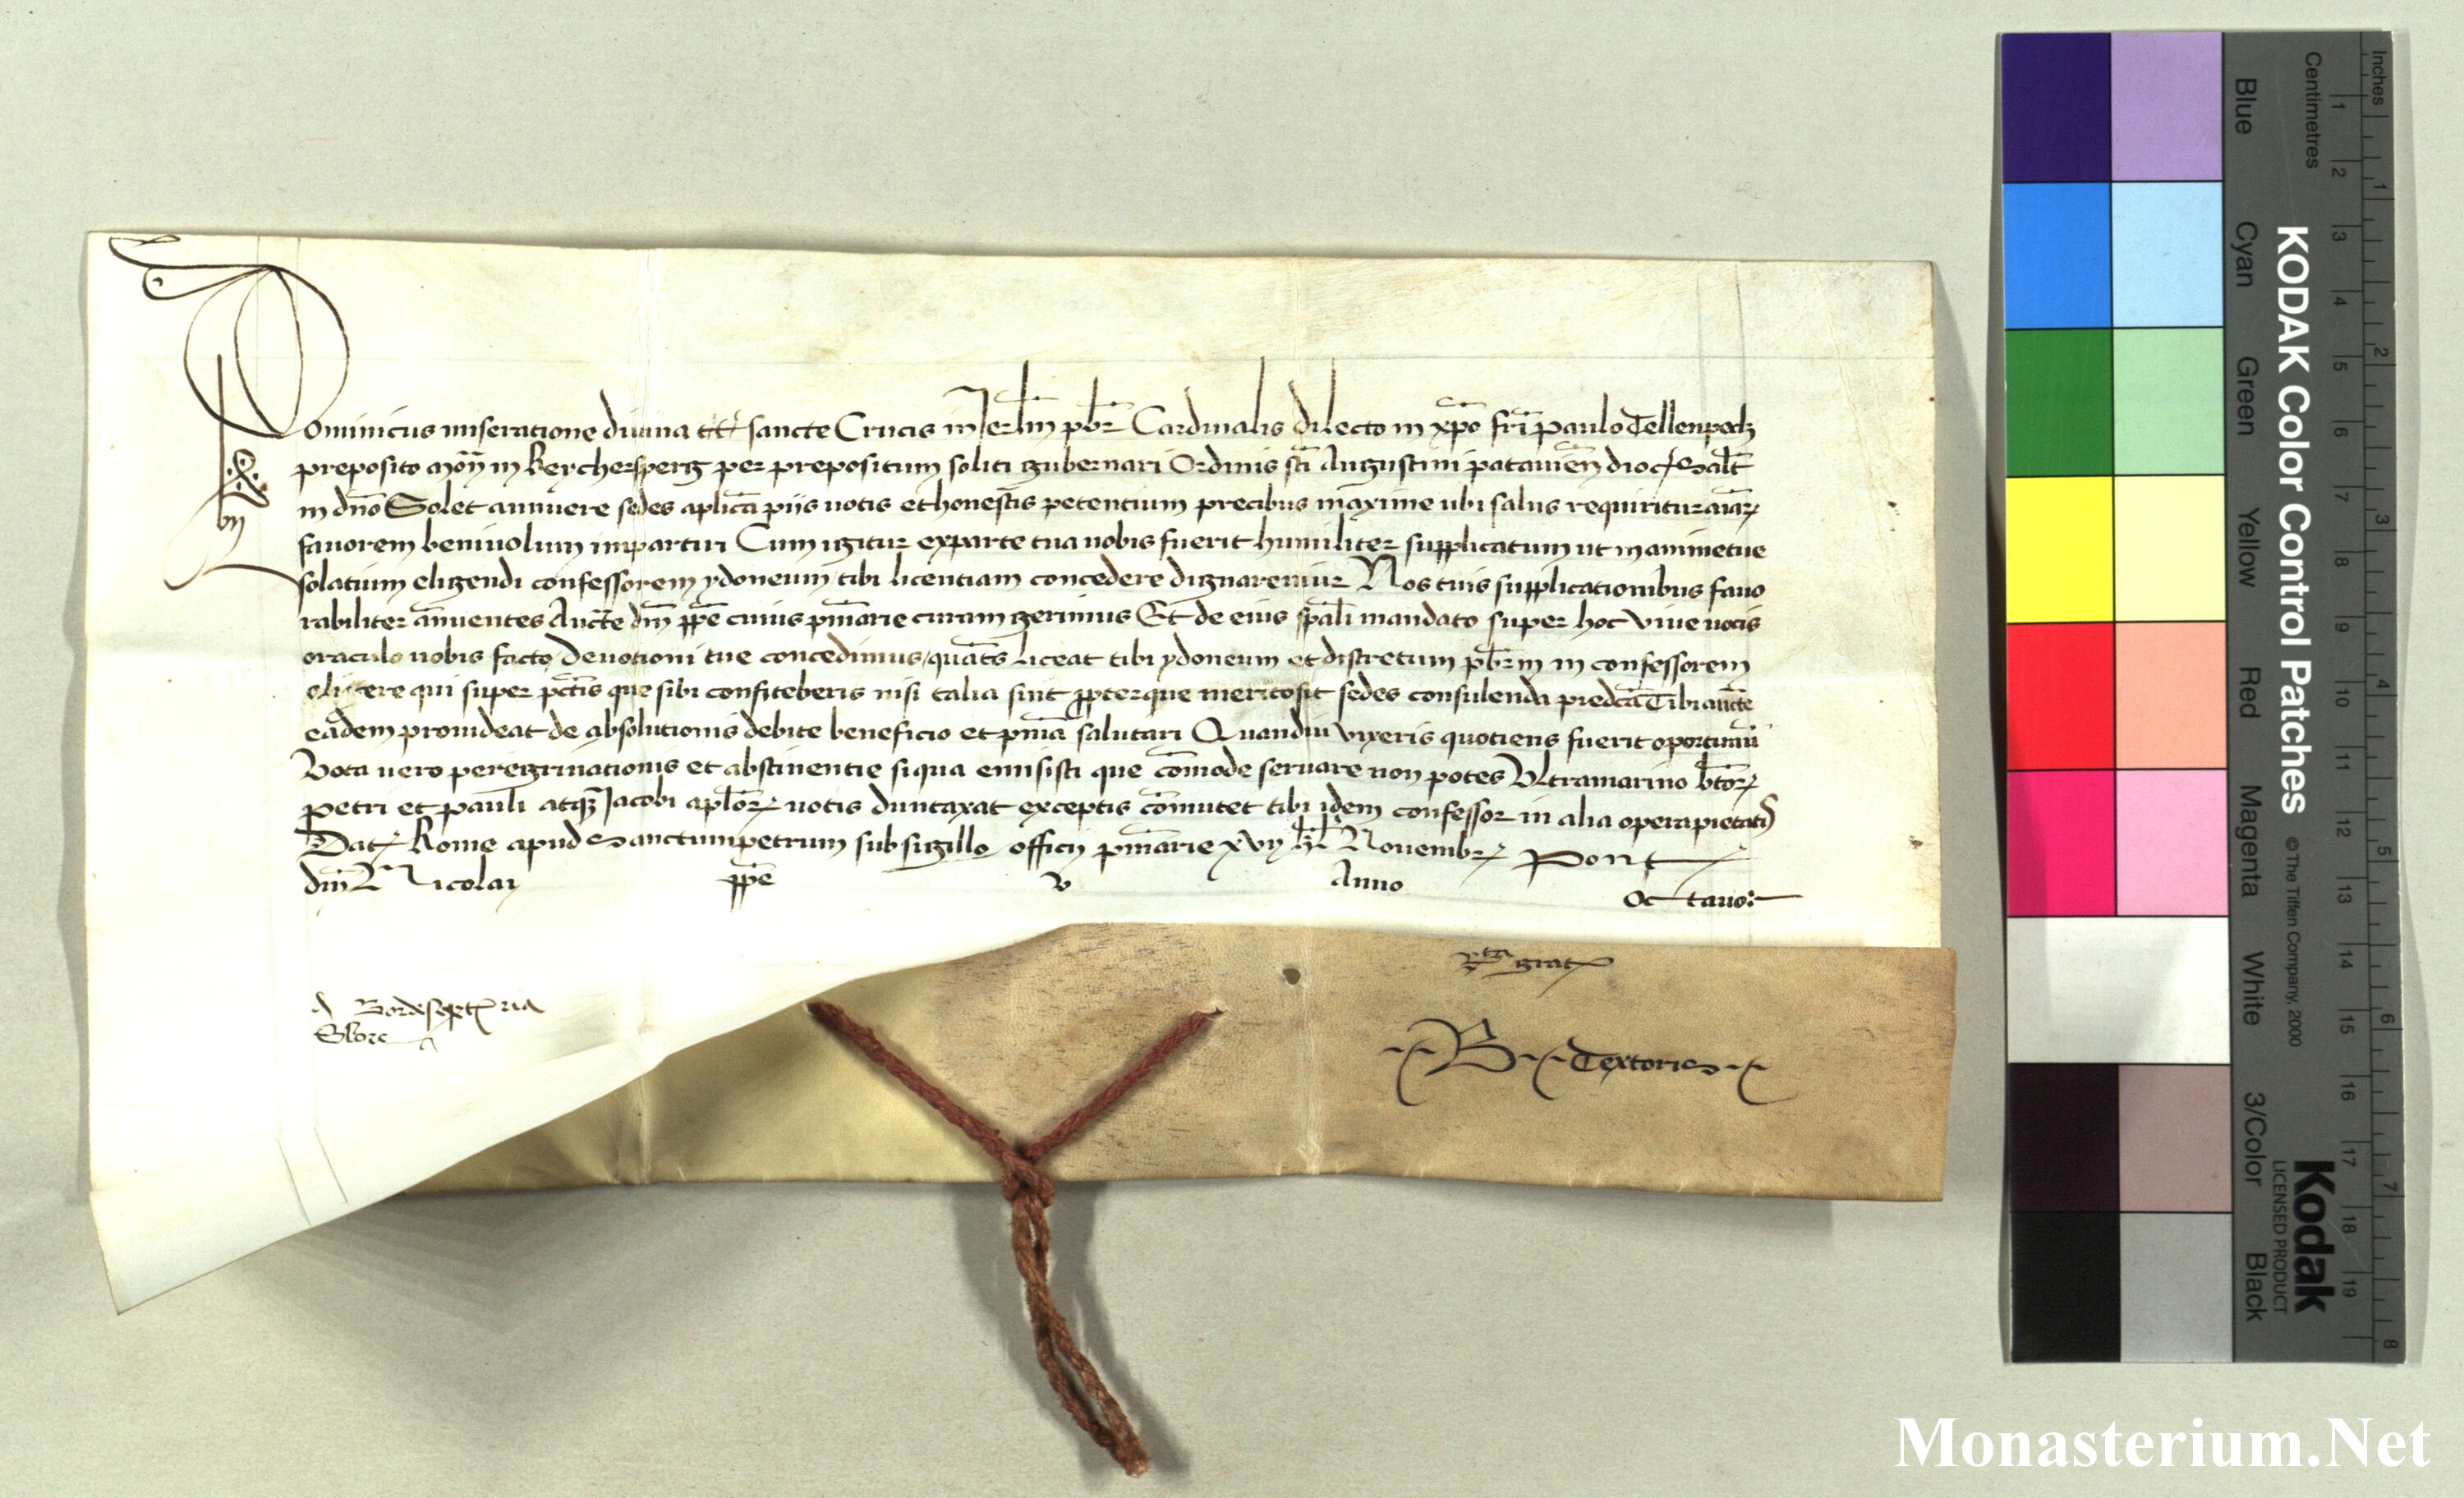 Dominicus miseratione diuina tt̃ sancte Crucis in Jerlm̃ pbr̃ Cardinalis dilecto in xp̃o fr̃i paulo Tellenpeck
preposito mon̄ in Berchersperg per prepositum soliti gubernari Ordinis sc̃i Augustini patauien̄ dioc̃ Salt̃
in dn̄o Solet annuere sedes aplic̃a piis uotis et honestis petentium precibus maxime ubi salus requiritur aiar̃
fauorem beniuolum impartiri Cum igitur ex parte tua nobis fuerit humiliter supplicatum ut in anime tue
solatium eligendi confessorem ydoneum tibi licentiam concedere dignaremur Nos tuis supplicationibus fauo
rabiliter annuentes Auct̃e dn̄i pp̃e cuius pn̄iarie curam gerimus Et de eius sp̃ali mandato super hoc viue uocis
oraculo nobis facto Deuotioni tue concedimus quat̃s liceat tibi ydoneum et discretum pbr̃m in confessorem
eligere qui super pct̃is que sibi confiteberis nisi talia sint propter que merito sit sedes consulenda predc̃a Tibi auct̃e
eadem prouideat de absolutionis debite beneficio et pn̄ia salutari Quandiu vixeris quotiens fuerit oportunū
Vota uero peregrinationis et abstinentie siqua emisisti que com̄ode seruare non potes Vltramarino bt̃or̃
Petri et Pauli atqȝ Jacobi aplor̃ uotis duntaxat exceptis com̄utet tibi idem confessor in alia opera pietatis
Dat̃ Rome apud Sanctumpetrum sub sigillo officij pn̄iarie xvij kl̃ Nouembr̃ Pont̃
dn̄i Nicolai pp̃e v Anno octauo
grat̃
B Textoris
KODAK Color Control Patches
© The Tiffen Company, 2000
Kodak
LICENSED PRODUCT
Blue Cyan Green Yellow Red Magenta White 3/Color Black
Inches 1 2 3 4 5 6 7 8
Centimetres 1 2 3 4 5 6 7 8 9 10 11 12 13 14 15 16 17 18 19
Monasterium.Net